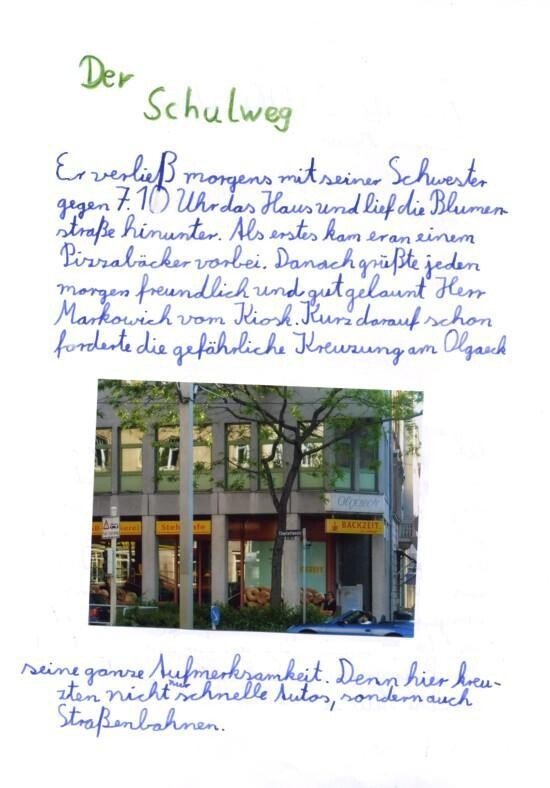 Der
Schulweg
Er verließ morgens mit seiner Schwester
gegen 7.10 Uhr das Haus und lief die Blumen-
straße hinunter. Als erstes kam er an einem
Pizzabäcker vorbei. Danach grüßte jeden
morgen freundlich und gut gelaunt Herr
Markowich vom Kiosk. Kurz darauf schon
forderte die gefährliche Kreuzung am Olgaeck
Olgaeck
Stehcafe
BACKZEIT
seine ganze Aufmerksamkeit. Denn hier kreu-
zten nicht nur schnelle Autos, sondern auch
Straßenbahnen.